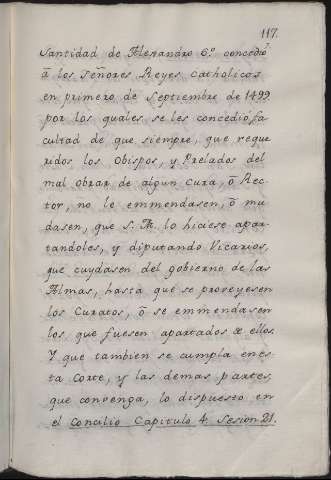 117.
Santidad de Alexandro 6.º concedió
â los señores Reyes Catholicos
en primero de Septiembre de 1499
por los quales se les concedió fa
cultad de que siempre, que reque
ridos los Obispos, y Prelados del
mal obrar de algun Cura, ô Rec
tor, no lo emmendasen, ô mu
dasen, que S. M. lo hiciese apar
tandoles, y diputando Vicarios,
que cuydasen del govierno de las
Almas, hasta que se proveyesen
los Curatos, ô se emmendasen
los que fuesen apartados de ellos.
Y que tambien se cumpla en es
ta Corte, y las demas partes,
que convenga, lo dispuesto en
el Concilio Capitulo 4. Sesion 21.